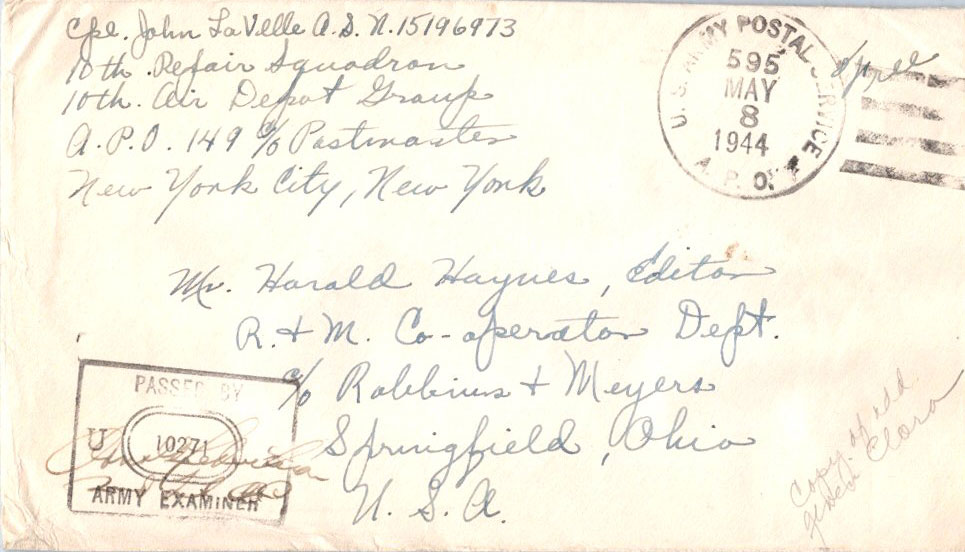 Cpl. John LaVelle A.S.N. 15196973
10th. Repair Squadron
10th. Air Depot Group
A.P.O. 149 c/o Postmaster
New York City, New York
U.S. ARMY POSTAL SERVICE
595
MAY
8
1944
A.P.O.
Mr. Harald Haynes, Editor
R. & M. Co-operator Dept.
c/o Robbins & Meyers
Springfield, Ohio
U. S. A.
PASSED BY
U
10271
ARMY EXAMINER
Copy of add
Clora